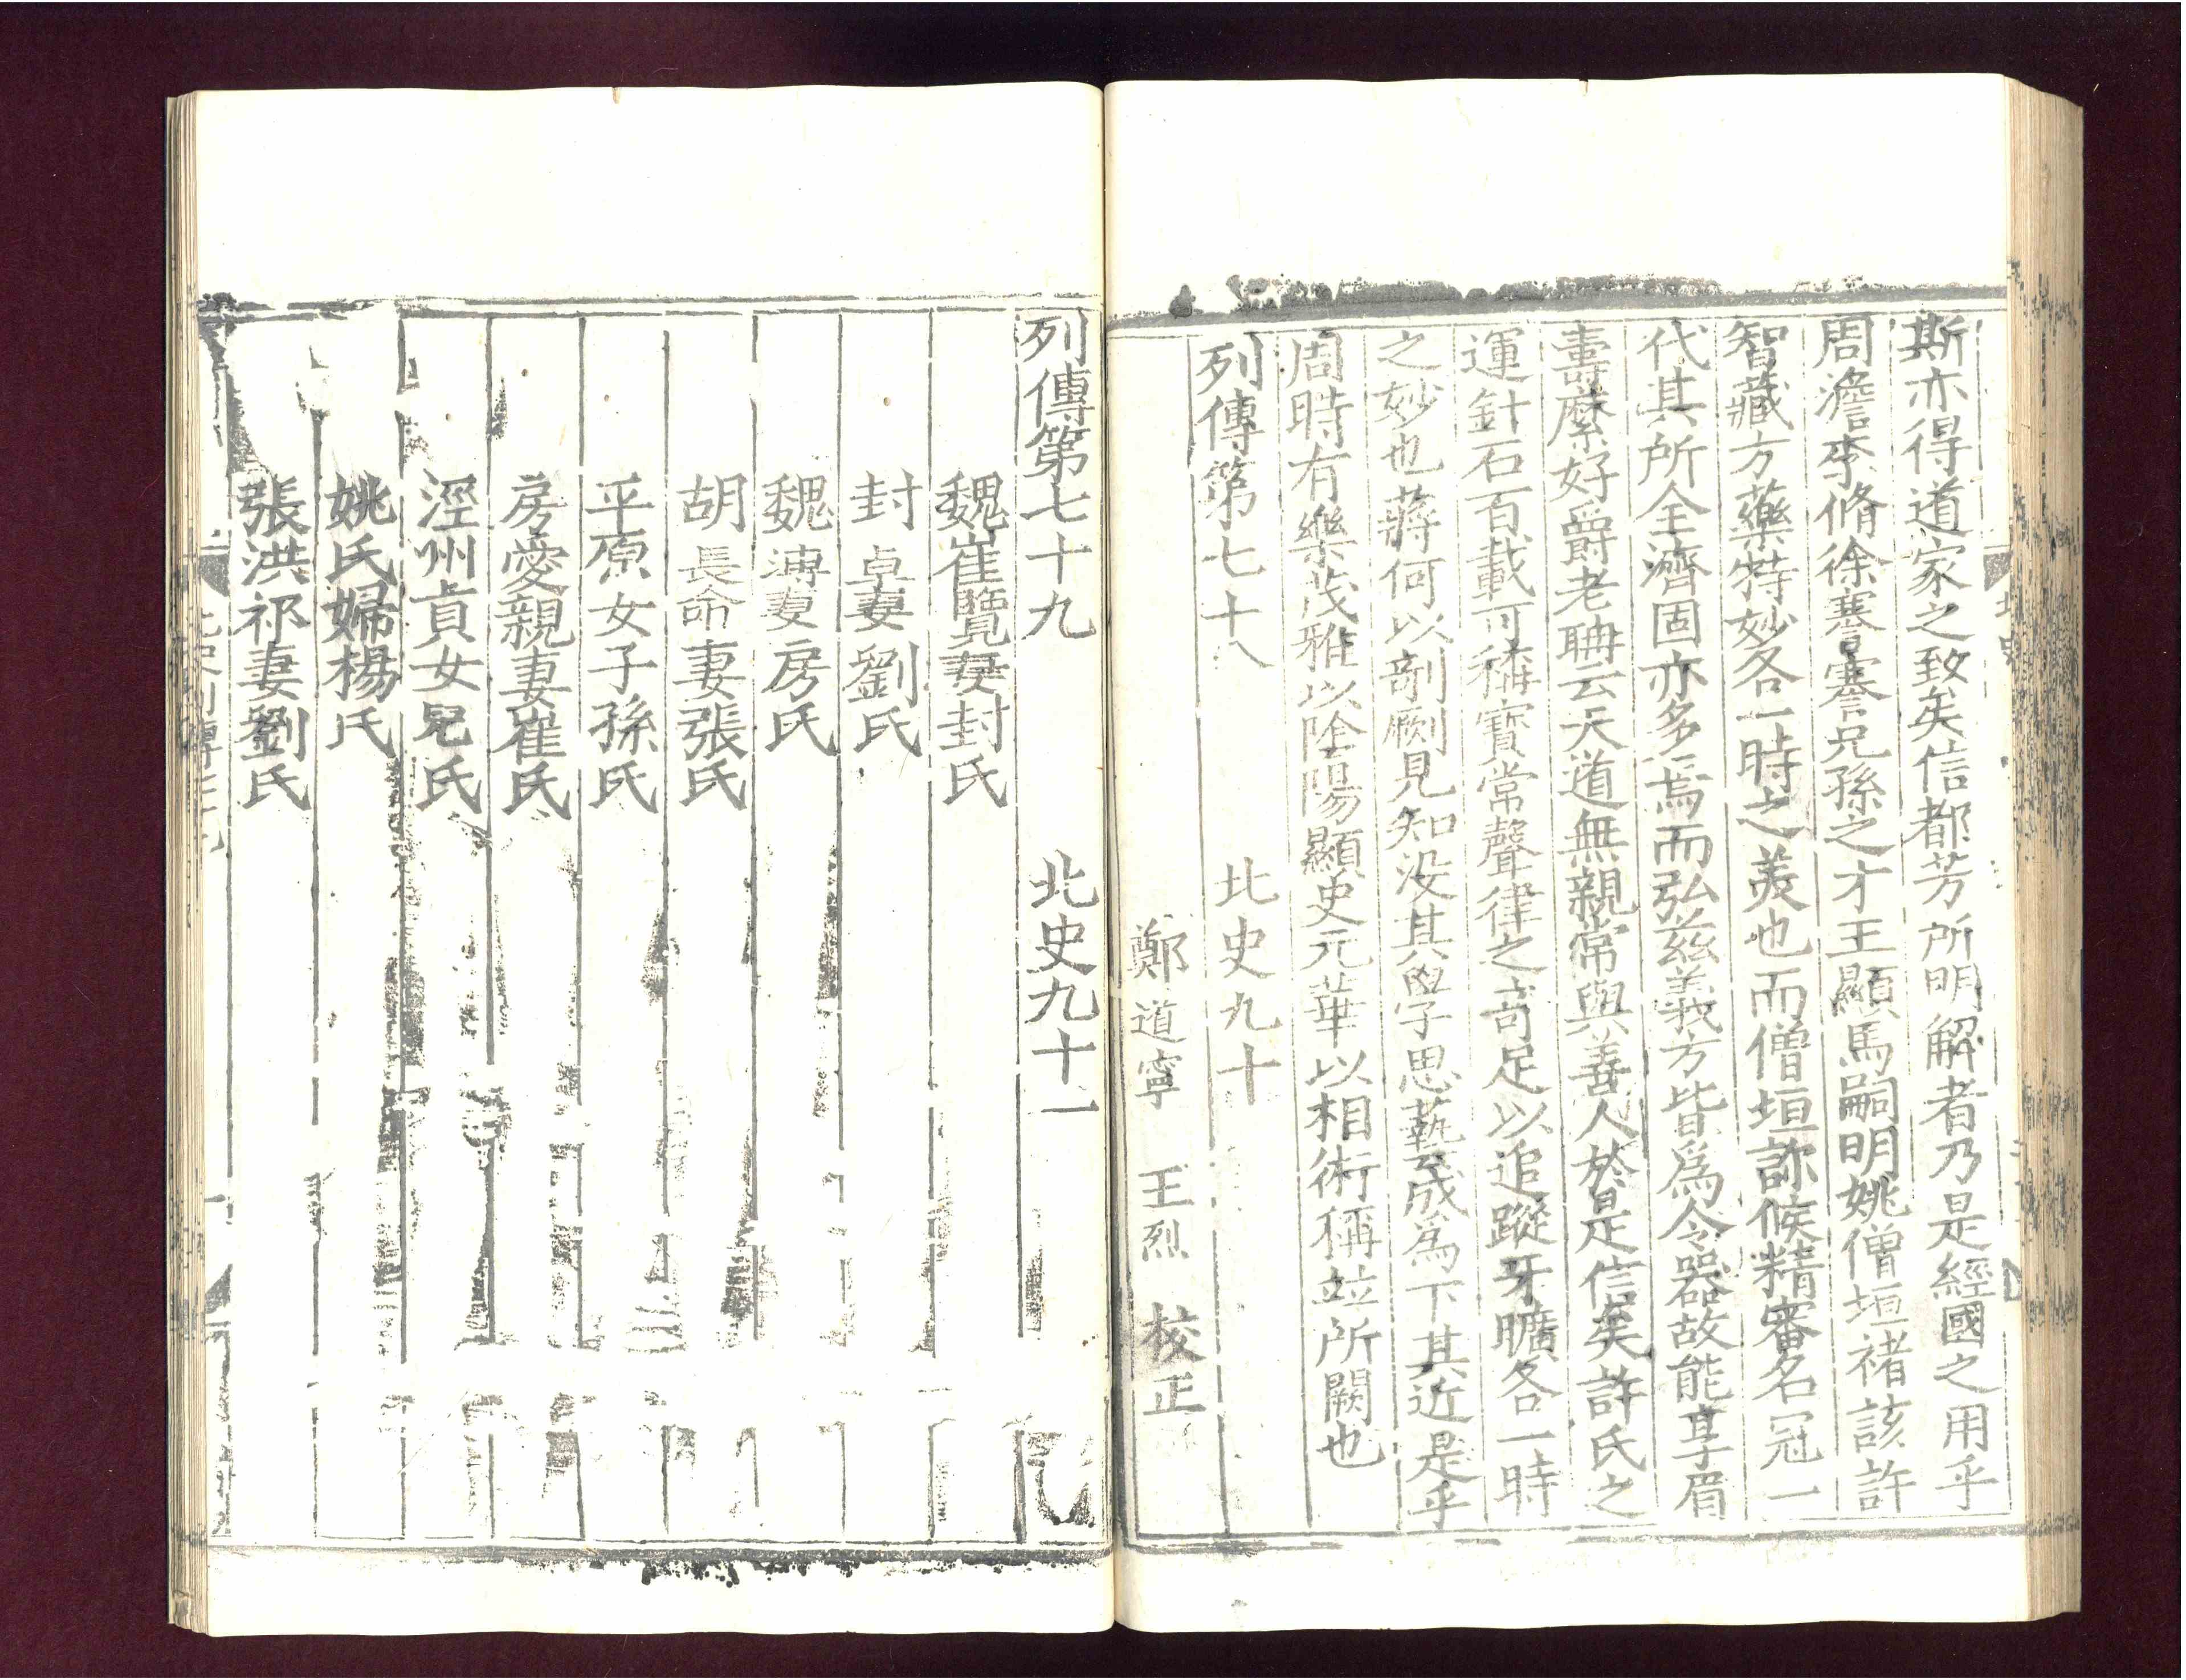 斯亦得道家之致矣信都芳所明解者乃是經國之用乎
周澹李脩徐謇謇兄孫之才王顯馬嗣明姚僧垣褚該許
智藏方藥特妙各一時之羙也而僧垣診候精審名冠一
代其所全濟固亦多焉而弘兹義方皆爲令器故能享眉
壽縻好爵老聃云天道無親常與善人於是信矣許氏之
運針石百載可稱寶常聲律之奇足以追蹤牙曠各一時
之妙也蔣何以剞劂見知没其學思藝成爲下其近是乎
周時有樂茂雅以陰陽顯史元華以相術稱並所闕也
列傳第七十八 北史九十
鄭道寧 王烈 校正
列傳第七十九 北史九十一
魏崔覽妻封氏
封卓妻劉氏
魏溥妻房氏
胡長命妻張氏
平原女子孫氏
房愛親妻崔氏
涇州貞女兒氏
姚氏婦楊氏
張洪祁妻劉氏